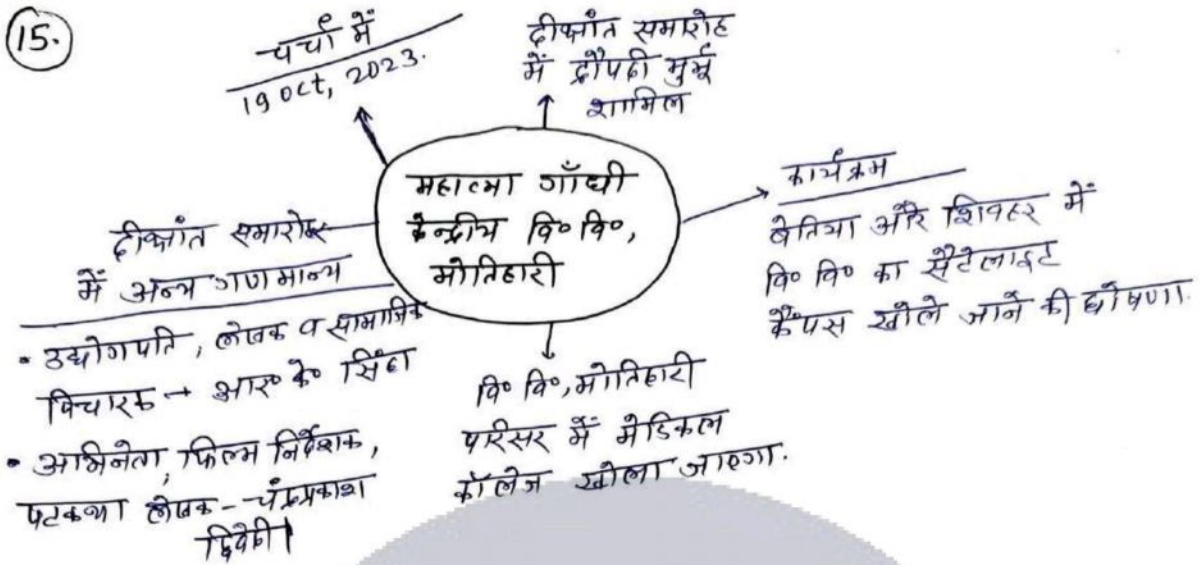 15.
चर्चा में
19 Oct, 2023.
दीक्षांत समारोह
में द्रौपदी मुर्मू
शामिल
महात्मा गाँधी
केन्द्रीय वि० वि०,
मोतिहारी
कार्यक्रम
बेतिया और शिवहर में
वि० वि० का सैटेलाइट
कैंपस खोले जाने की घोषणा.
दीक्षांत समारोह
में अन्य गणमान्य
• उद्योगपति, लेखक व सामाजिक
विचारक → आर० के० सिंहा
• अभिनेता, फिल्म निर्देशक,
पटकथा लेखक - चंद्रप्रकाश
द्विवेदी।
वि० वि०, मोतिहारी
परिसर में मेडिकल
कॉलेज खोला जाएगा.